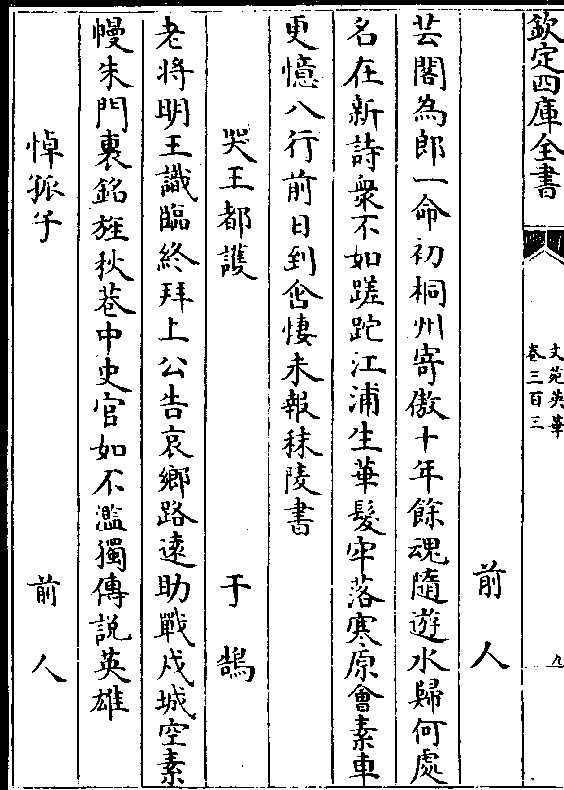 欽定四庫全書
文苑英華
卷三百三
九
前人
芸閣為郎一命初桐州寄傲十年餘魂隨遊水歸何處
名在新詩衆不如蹉跎江浦生華髮牢落寒原會素車
更憶八行前日到含悽未報秣陵書
哭王都護
于鵠
老將明王識臨終拜上公告哀鄉路遠助戰戍城空素
幔朱門裏銘旌秋巷中史官如不濫獨傳說英雄
悼孤子
前人